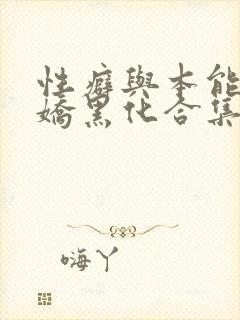 性癖與本能
嬌黑化合集
嗨丫